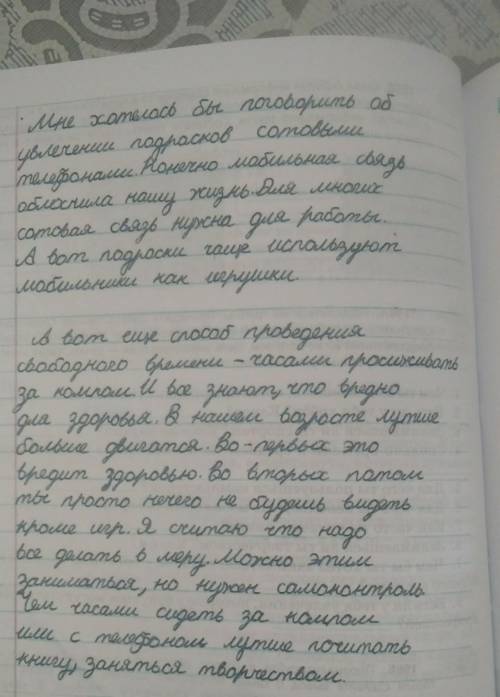 Мне хотелось бы поговорить об
увлечении подросков сотовыми
телефонами. Конечно мобильная связь
облюсчила нашу жизнь. Для многих
сотовая связь нужна для работы.
А вот подроски чаще используют
мобильники как игрушки.
А вот еще способ проведения
свободного времени - часами просиживать
за компом. И все знают, что вредно
для здоровья. В нашем возросте лутше
больше двигатся. Во-первых это
вредит здоровью. Во вторых потом
ты просто нечего не будешь видеть
кроме игр. Я считаю что надо
все делать в меру. Можно этим
заниматься, но нужен самоконтроль
Чем часами сидеть за компом
или с телефоном лутше почитать
книгу, заняться творчеством.